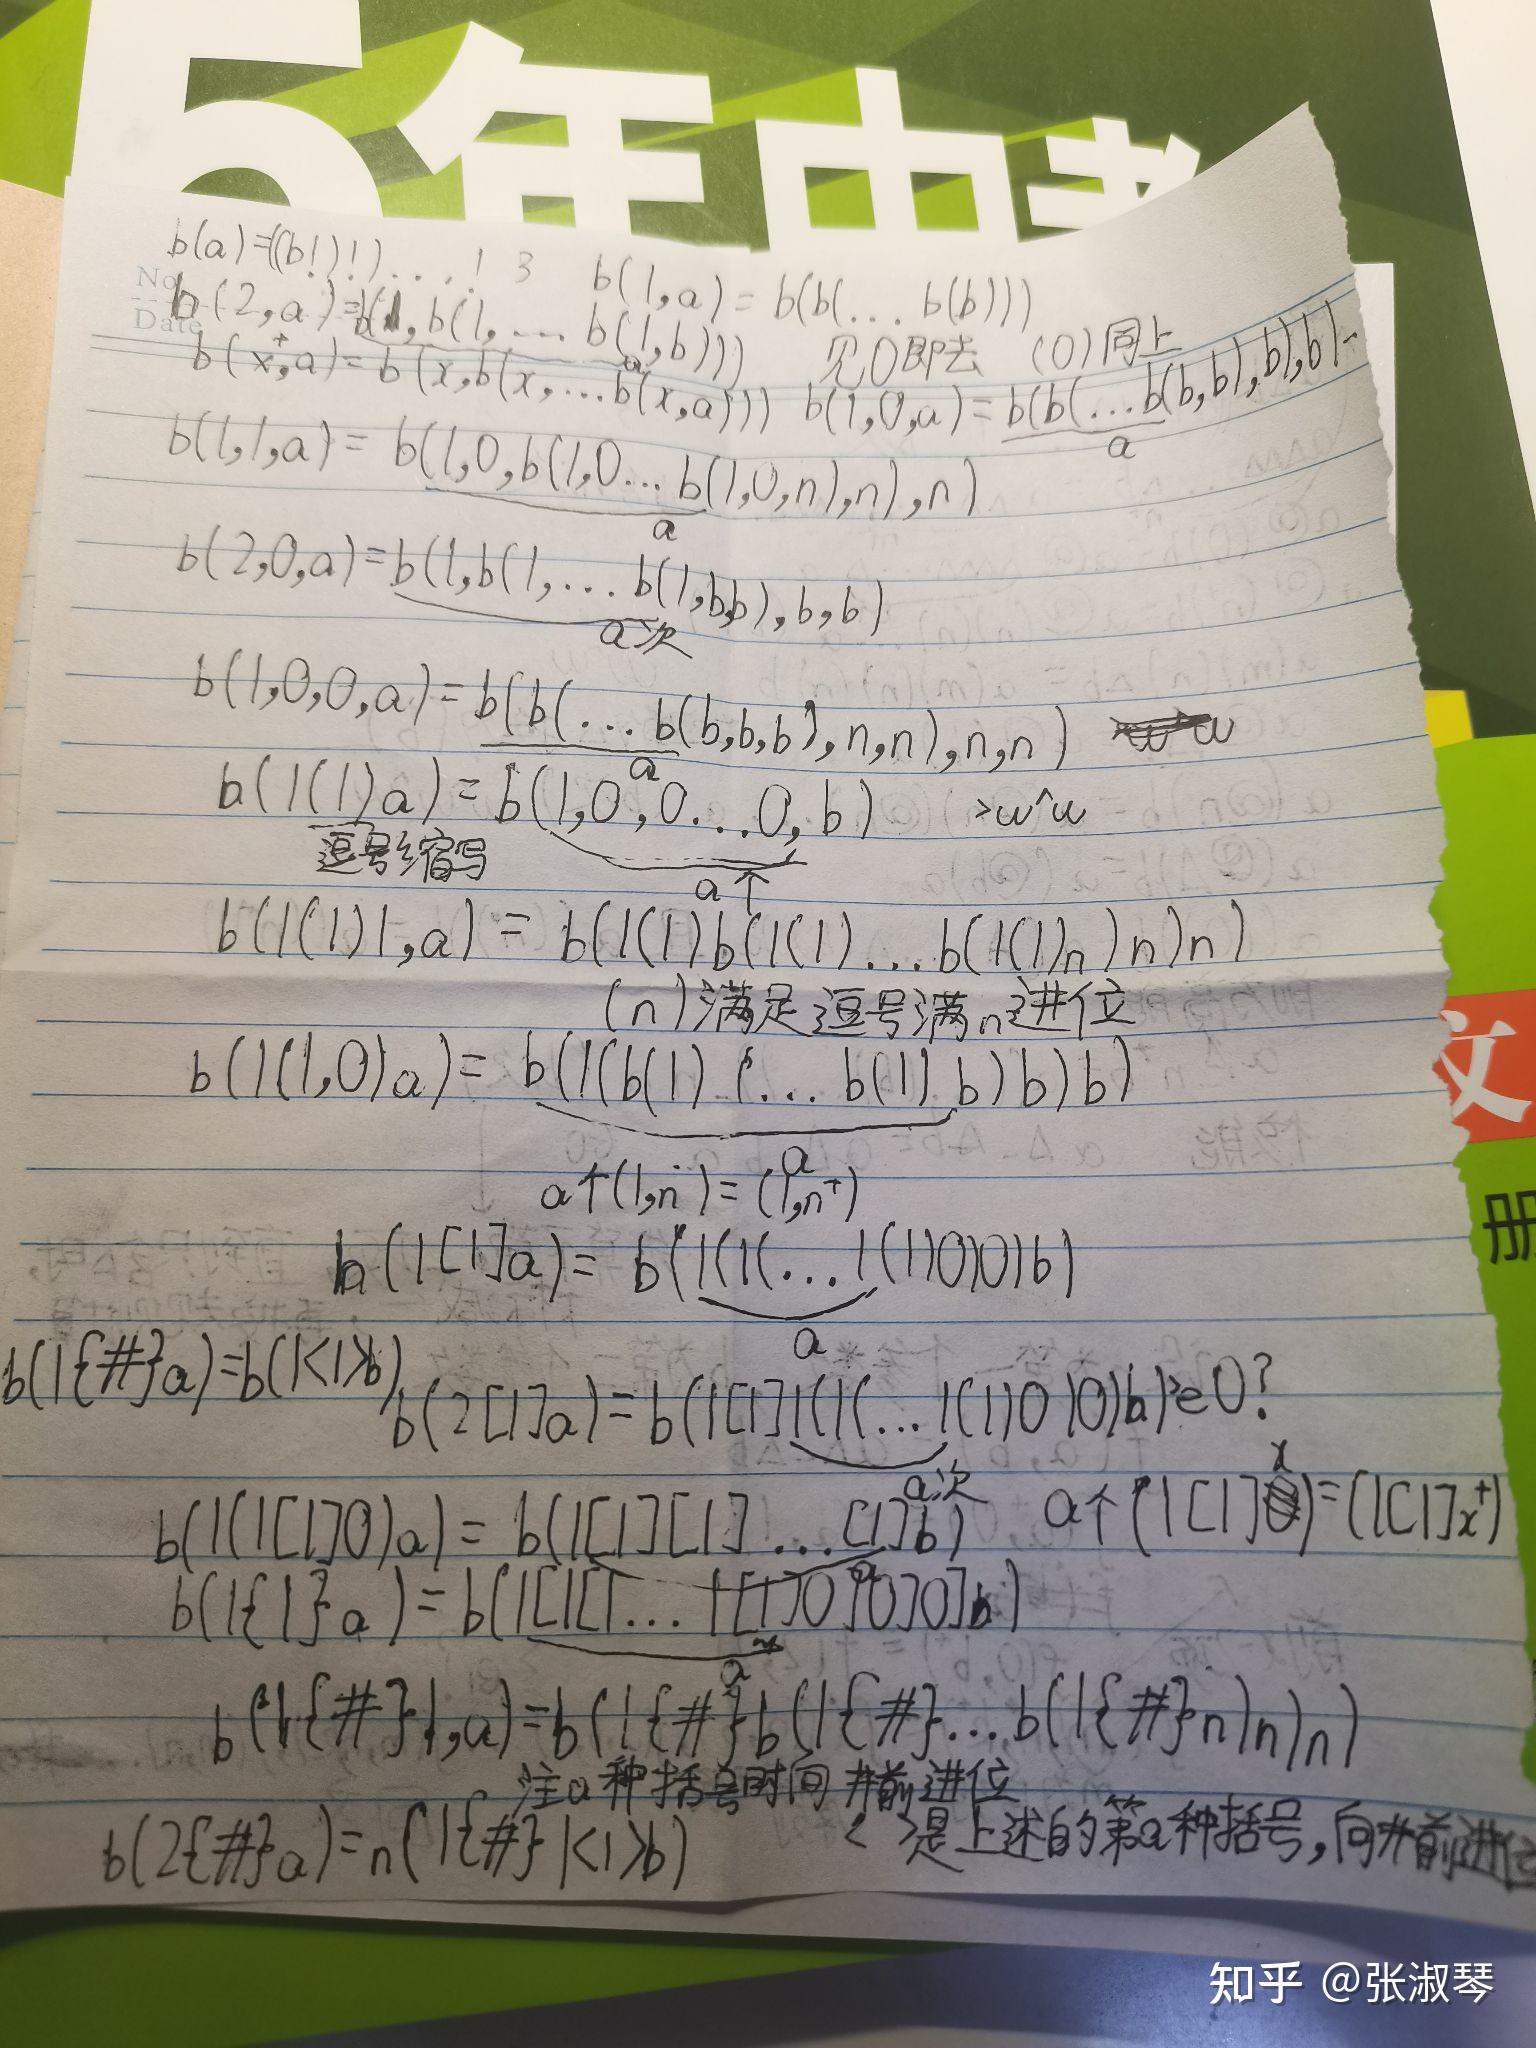 5年中考
No.
Date
b(a)=((b!)!)....! 3 b(1,a)=b(b(...b(b)))
b(2,a)=b(1,b(1,....b(1,b))) 见0即去 (0)同上
b(x⁺,a)=b(x,b(x,...b(x,a))) b(1,0,a)=b(b(...b(b,b),b),b)
a
b(1,1,a)=b(1,0,b(1,0...b(1,0,n),n),n)
a
b(2,0,a)=b(1,b(1,...b(1,b,b),b,b)
a次
b(1,0,0,a)=b(b(...b(b,b,b),n,n),n,n) w
a
b(1(1)a)=b(1,0,0...0,b) >w^w
逗号缩写
a个
b(1(1)1,a)=b(1(1)b(1(1)...b(1(1)n)n)n)
(n)满足逗号满n进位
b(1(1,0)a)=b(1(b(1)(...b(1)b)b)b)
a
a个(1,n)=(1,n⁺)
b(1[1]a)=b(1(1(...1(1)0)0)b)
a
b(1{#}a)=b(1<1>b)
b(2[1]a)=b(1[1]1(1(...1(1)0)0)b)>e0?
a次
a个(1[1]x)=(1[1]x⁺)
b(1(1[1]0)a)=b(1[1][1]...[1]b)
a
b(1{1}a)=b(1[1[1...1[1]0]0]0]b)
a
b(1{#}1,a)=b(1{#}b(1{#}...b(1{#}n)n)n)
注a种括号时间#前进位
b(2{#}a)=n(1{#}1<1>b) < >是上述的第a种括号,向#前进位
文
册
知乎 @张淑琴